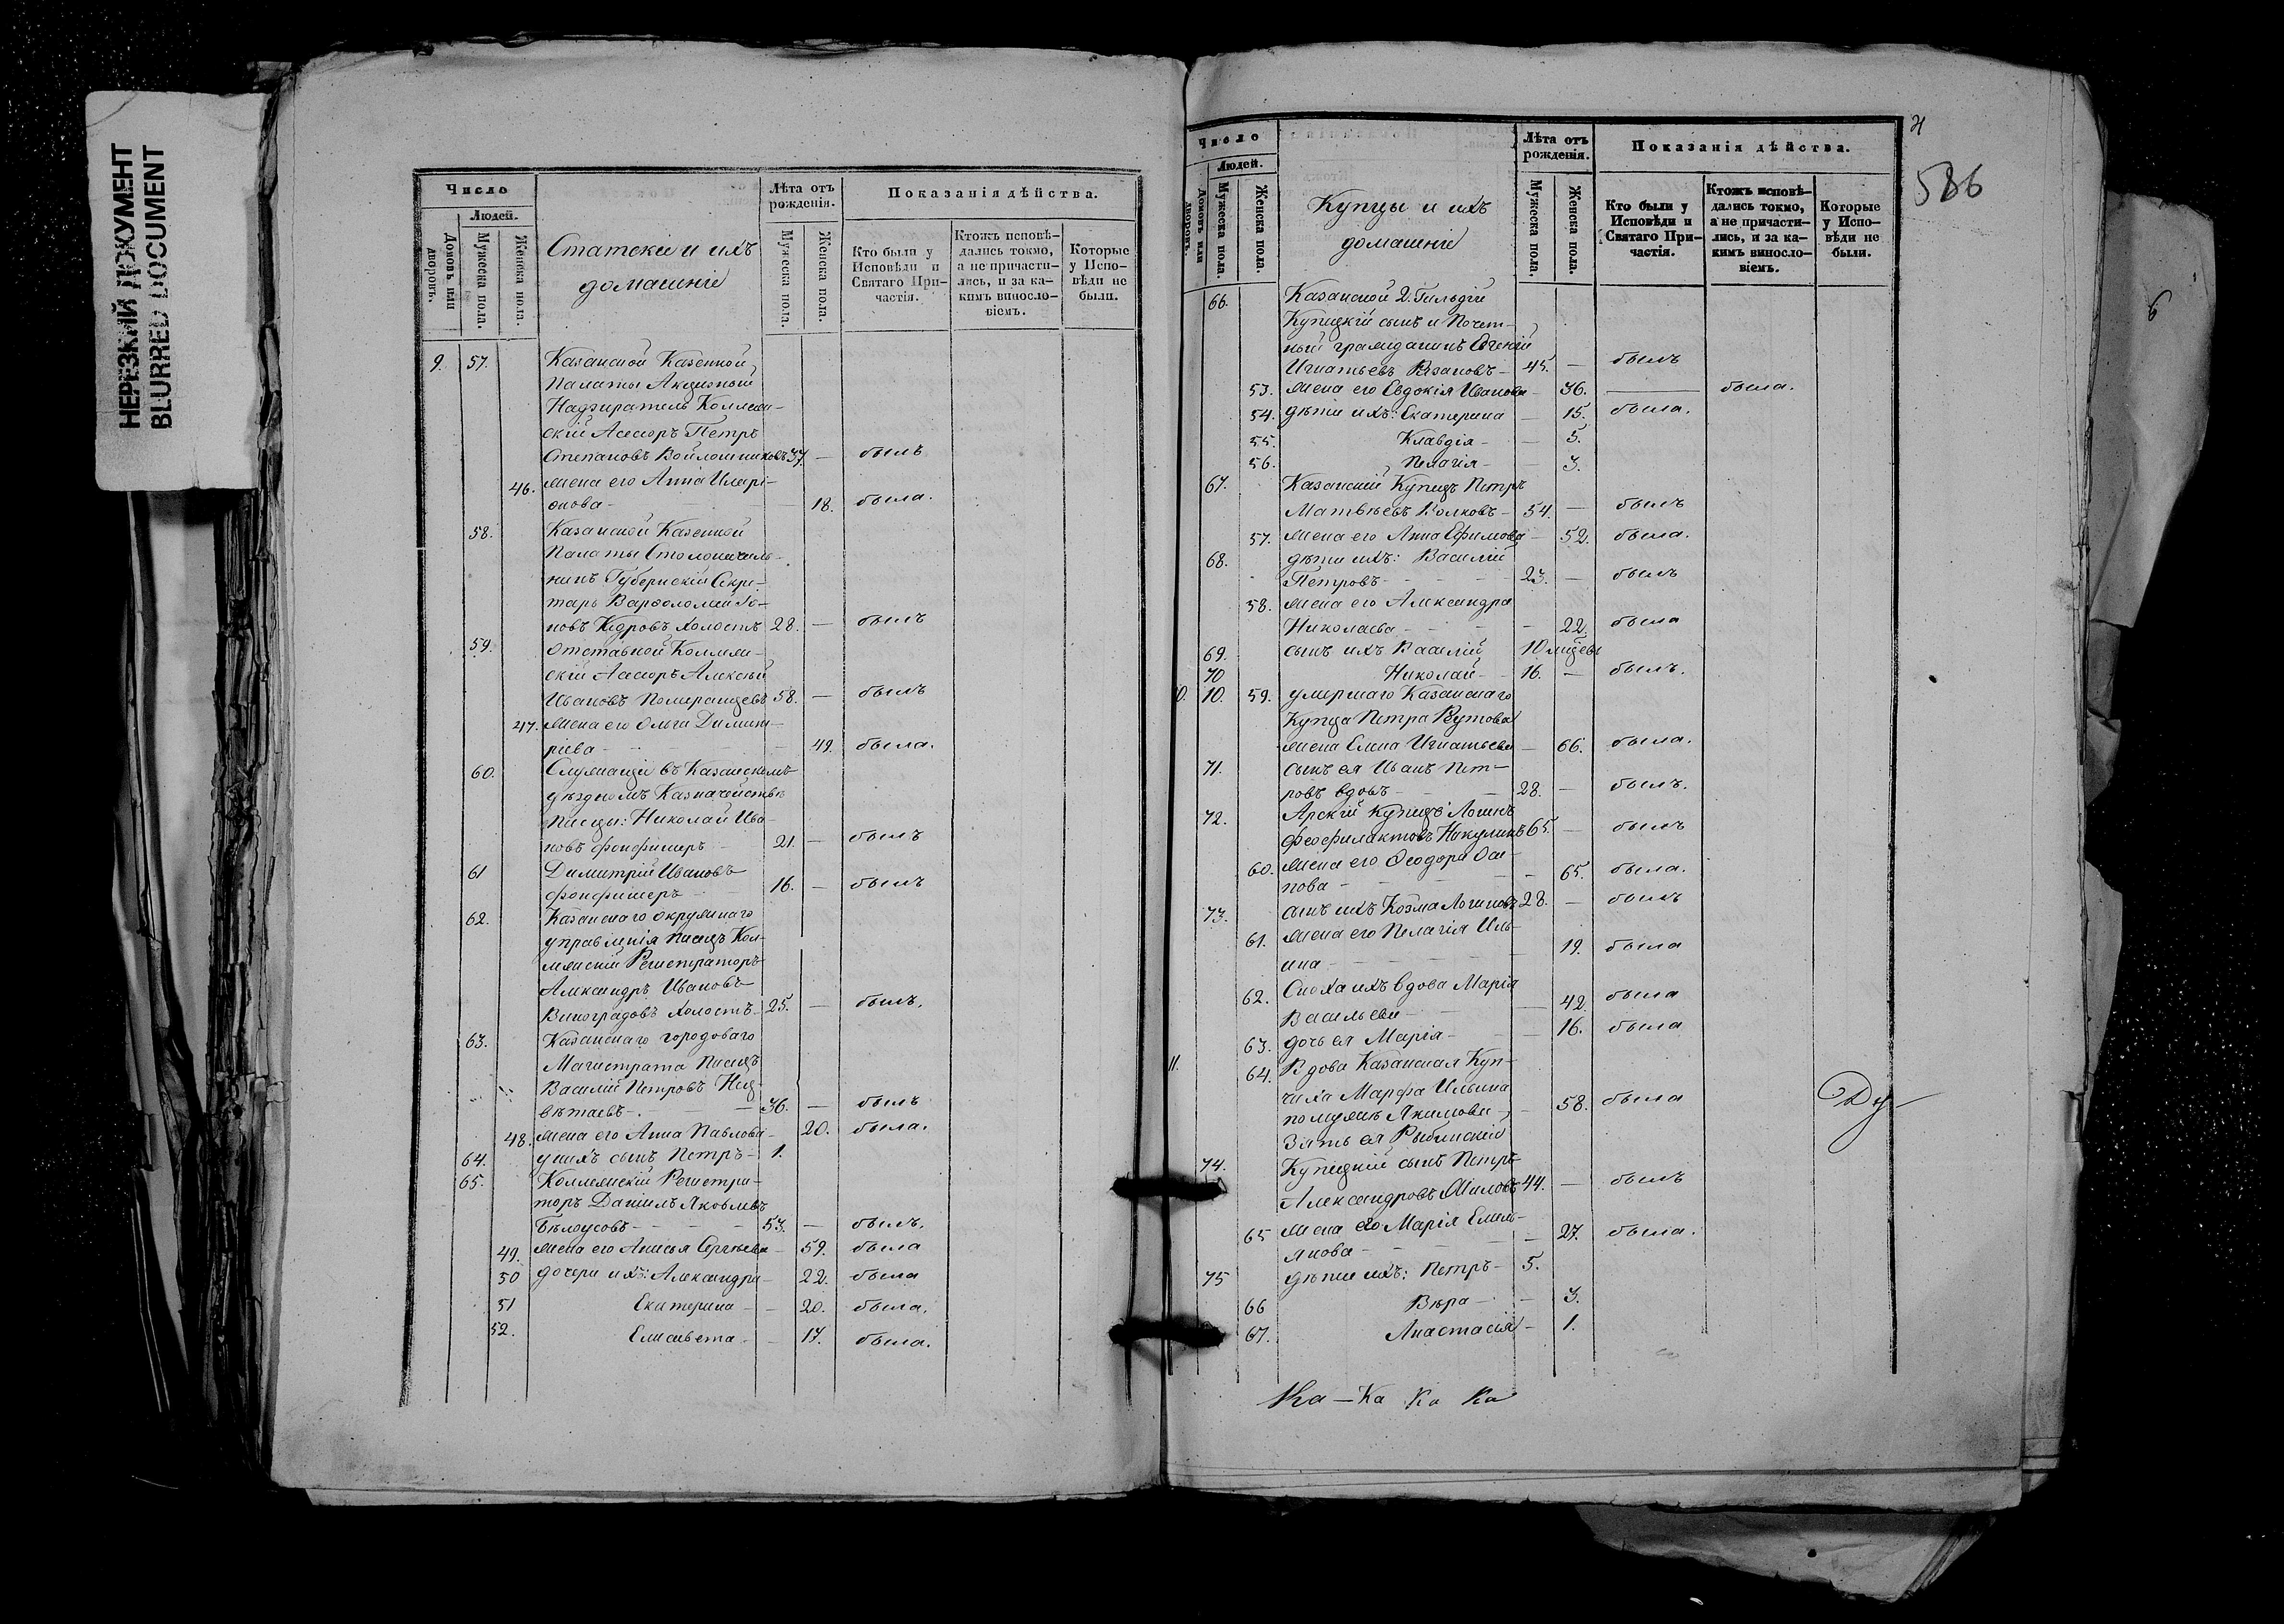 НЕРЕЗКИЙ ДОКУМЕНТ
BLURRED DOCUMENT
Число
Людей.
Домовъ или дворовъ.
Мужеска пола.
Женска пола.
Статскіе и ихъ
домашніе
Лѣта отъ рожденія.
Мужеска пола.
Женска пола.
Показанія дѣйства.
Кто были у Исповѣди и Святаго Причастія.
Ктожъ исповѣдались токмо, а не причастились, и за какимъ винословіемъ.
Которые у Исповѣди не были.
9. 57. Казанской Казенной
Палаты Акцизный
Надзиратель Коллеж-
скій Асессоръ Петръ
Степановъ Войлошниковъ 37. — былъ
46. жена его Анна Илари-
онова — 18. была.
58. Казанской Казенной
Палаты Столоначаль-
никъ Губернскій Секре-
тарь Варфоломей
новъ Кедровъ холостъ 28. — былъ
59. Отставной Коллеж-
скій Асессоръ Алексѣй
Ивановъ Померанцевъ 58. — былъ
47. жена его Ольга Димит-
ріева — 49. была.
60. Служащіе въ Казанскомъ
уѣздномъ Казначействѣ
писцы: Николай Ива-
новъ Фонфишеръ 21. — былъ
61 Димитрій Ивановъ
Фонфишеръ 16. — былъ
62. Казанскаго окружнаго
управленія писецъ Кол-
лежскій Регистраторъ
Александръ Ивановъ
Виноградовъ холостъ 25. — былъ.
63. Казанскаго городоваго
Магистрата Писецъ
Василій Петровъ Нец-
вѣтаевъ — 36. — былъ
48. жена его Анна Павлова — 20. была.
64. у нихъ сынъ Петръ — 1.
65. Коллежскій Регистра-
торъ Даніилъ Яковлевъ
Бѣлоусовъ — 53. — былъ.
49. жена его Анисья Сергѣева — 59. была
50 дочери ихъ: Александра — 22. была
51 Екатерина — 20. была.
52. Елисавета — 17. была.
586
6
Число
Людей.
Домовъ или дворовъ.
Мужеска пола.
Женска пола.
Купцы и ихъ
домашніе
Лѣта отъ рожденія.
Мужеска пола.
Женска пола.
Показанія дѣйства.
Кто были у Исповѣди и Святаго Причастія.
Ктожъ исповѣдались токмо, а не причастились, и за какимъ винословіемъ.
Которые у Исповѣди не были.
66. Казанской 2. Гильдіи
Купецкій сынъ и Почет-
ный гражданинъ Евгеній
Игнатьевъ Рязановъ — 45. — былъ
53. жена его Евдокія Иванова — 36. — была.
54. дѣти ихъ: Екатерина — 15. была.
55. Клавдія — 5.
56. Пелагія — 3.
67. Казанскій Купецъ Петръ
Матвѣевъ Волковъ — 54. — былъ
57. жена его Анна Ефимова — 52. была.
68. дѣти ихъ: Василій
Петровъ — 23. — былъ
58. жена его Александра
Николаева — 22. была
69. сынъ ихъ Василій 10 мѣсяцевъ
70 Николай — 16. — былъ.
10. 59. умершаго Казанскаго
Купца Петра
жена Елена Игнатьева — 66. была.
71. сынъ ея Иванъ Пет-
ровъ вдовъ — 28. — былъ.
72. Арскій Купецъ Логинъ
Феофилактовъ Никулинъ 65. — былъ
60. жена его Ѳеодора Оси-
пова — 65. была.
73. сынъ ихъ Козма Логиновъ 28. — былъ
61. жена его Пелагія Иль-
ина — 19. была
62. Сноха ихъ вдова Марія
Васильева — 42. была
63. дочь ея Марія — 16. была
11. 64. Вдова Казанская Куп-
чиха Марфа Ильина
по мужѣ Якимова — 58. была
Зять ея Рыбинскій
74. Купецкій сынъ Петръ
Александровъ Миловъ 44. — былъ
65 жена его Марія Емель-
янова — 27. была.
75 дѣти ихъ: Петръ — 5.
66 Вѣра — 3.
67. Анастасія — 1.
Ка — Ка Ка Ка